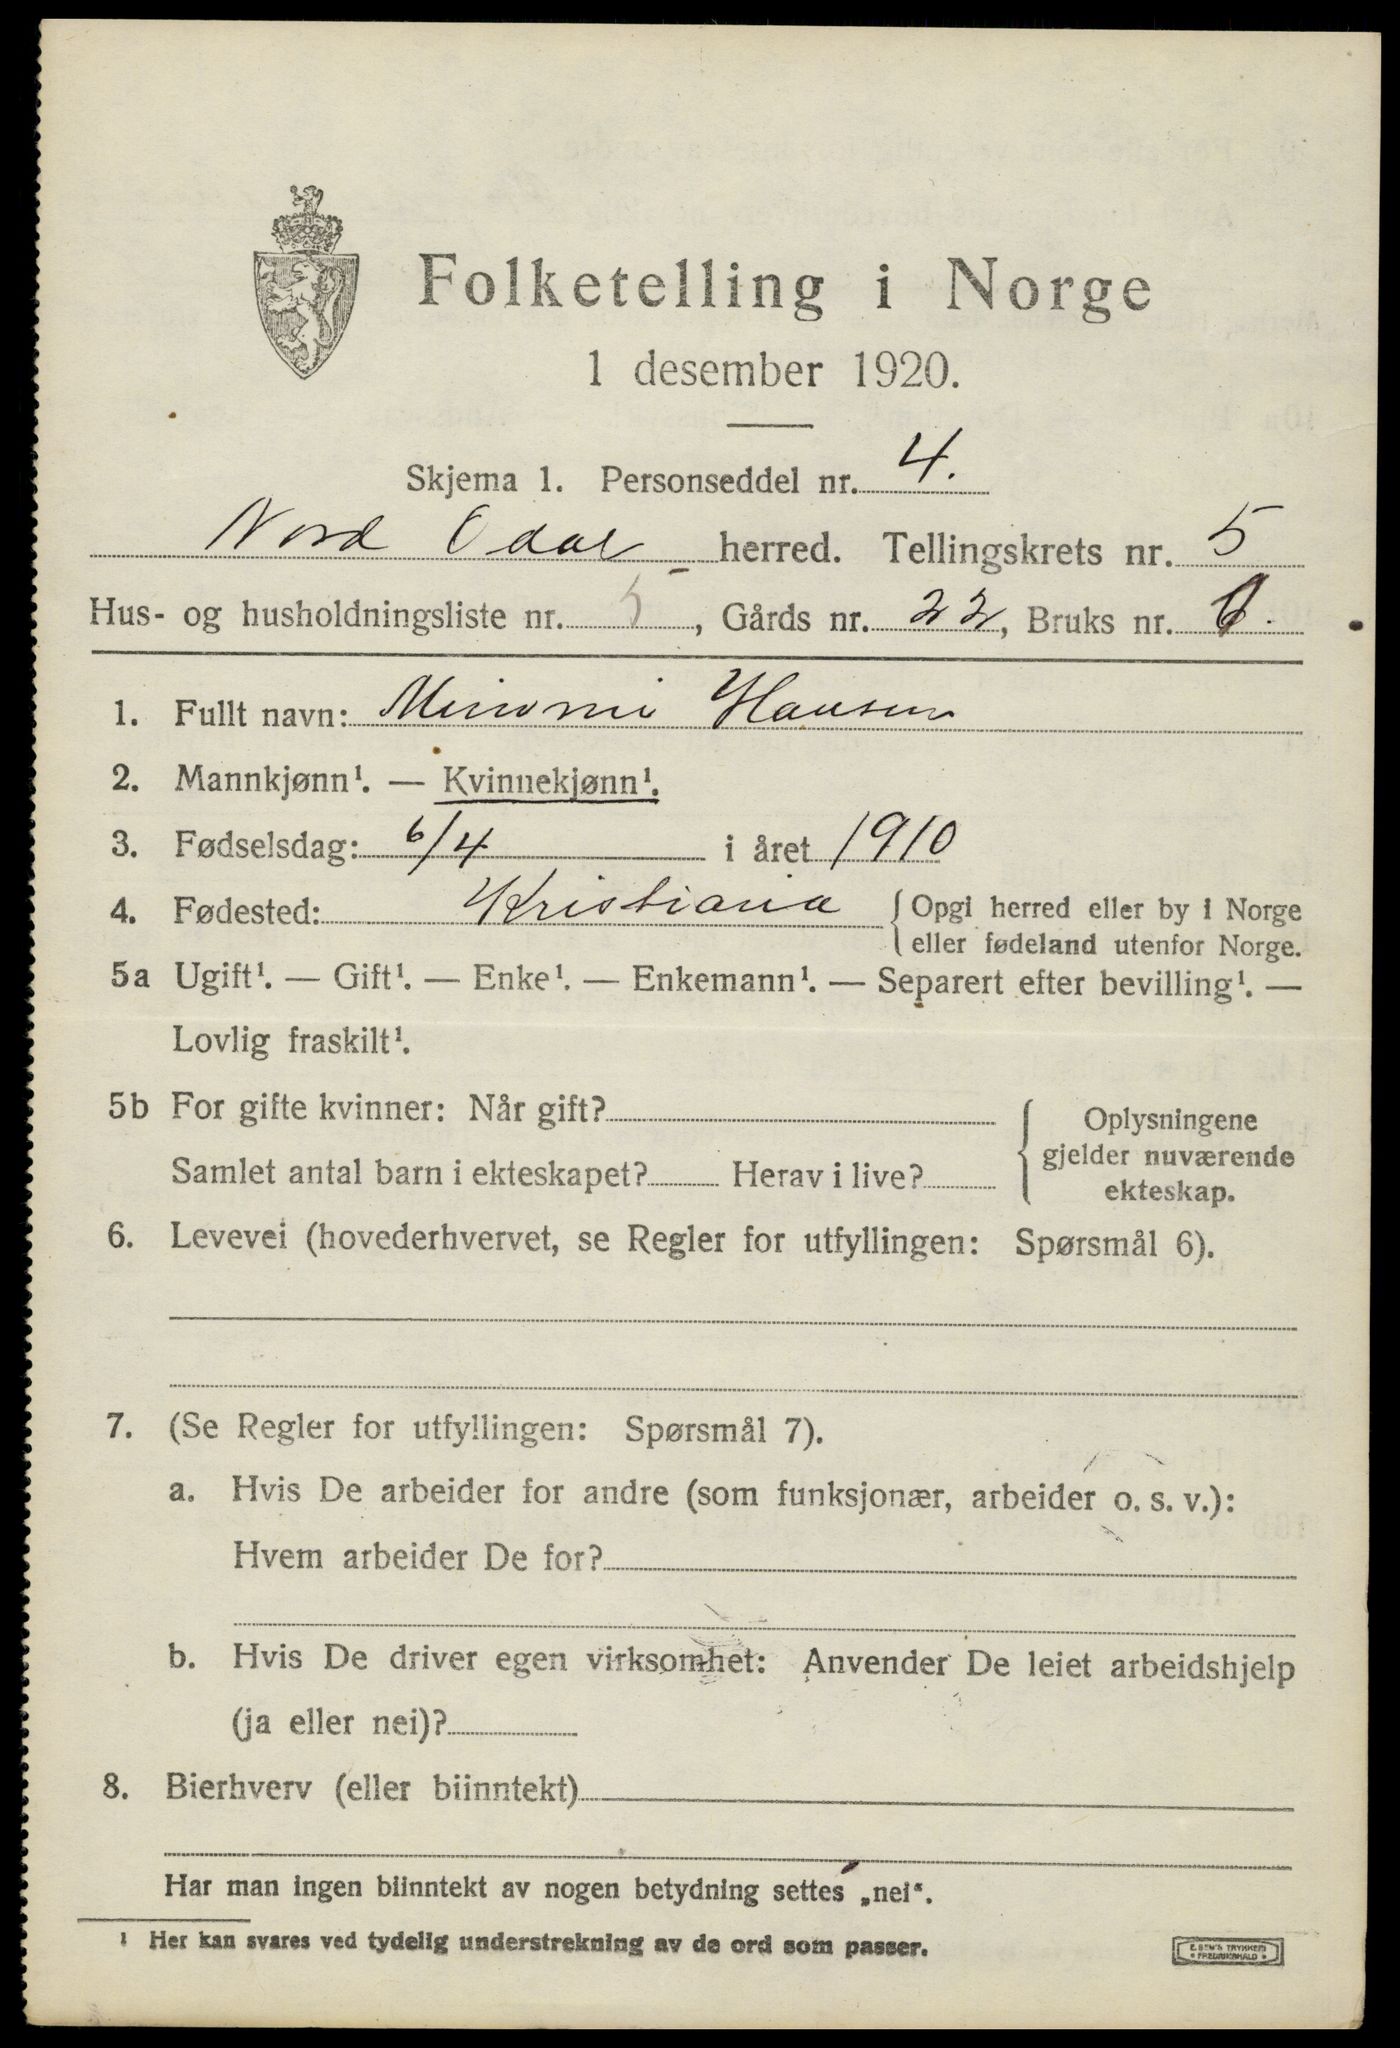 Folketelling i Norge
1 desember 1920.
Skjema 1. Personseddel nr. 4.
Nord Odal herred. Tellingskrets nr. 5
Hus- og husholdningsliste nr. 5, Gårds nr. 22, Bruks nr.
1. Fullt navn: Minni Hansen
2. Mannkjønn¹. — Kvinnekjønn¹.
3. Fødselsdag: 6/4 i året 1910
4. Fødested: Kristiania { Opgi herred eller by i Norge
eller fødeland utenfor Norge.
5a Ugift¹. — Gift¹. — Enke¹. — Enkemann¹. — Separert efter bevilling¹. —
Lovlig fraskilt¹.
5b For gifte kvinner: Når gift? { Oplysningene
gjelder nuværende
Samlet antal barn i ekteskapet? Herav i live? ekteskap.
6. Levevei (hovederhvervet, se Regler for utfyllingen: Spørsmål 6).
7. (Se Regler for utfyllingen: Spørsmål 7).
a. Hvis De arbeider for andre (som funksjonær, arbeider o. s. v.):
Hvem arbeider De for?
b. Hvis De driver egen virksomhet: Anvender De leiet arbeidshjelp
(ja eller nei)?
8. Bierhverv (eller biinntekt)
Har man ingen biinntekt av nogen betydning settes „nei“.
¹ Her kan svares ved tydelig understrekning av de ord som passer.
E. SEM'S TRYKKERI
• FREDRIKSHALD •